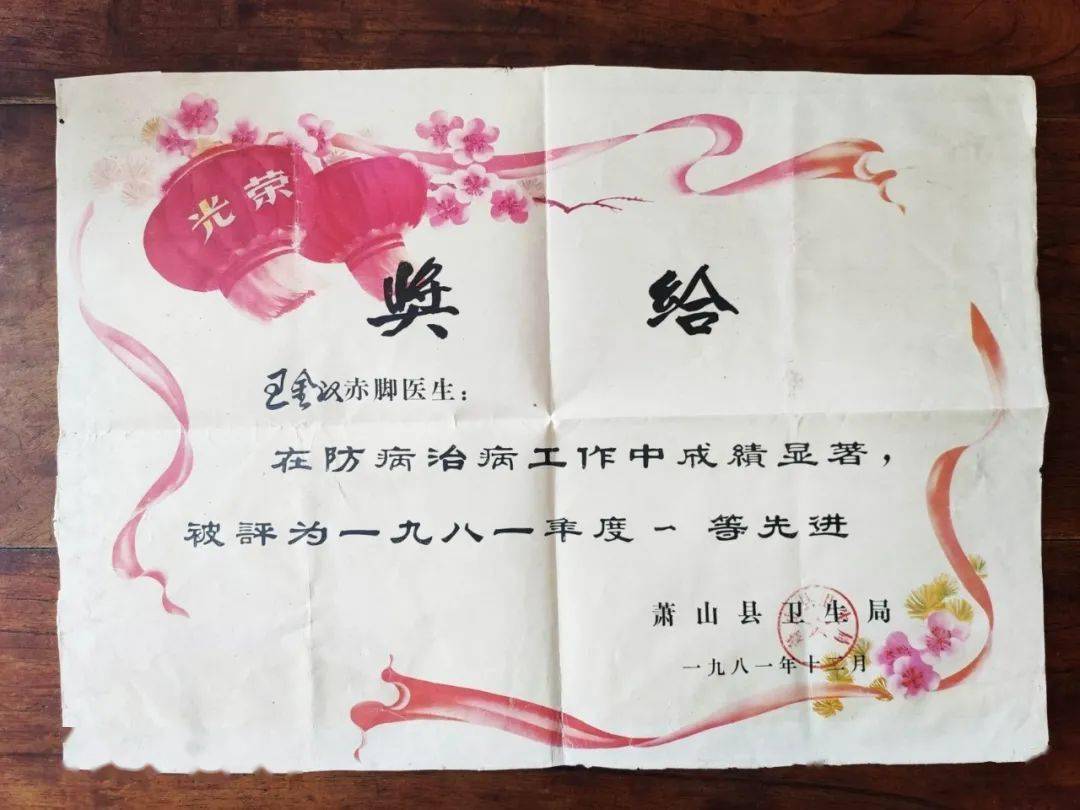 光荣
奖给
王金汉赤脚医生：
在防病治病工作中成績显著，
被評为一九八一年度一等先进
萧山县卫生局
一九八一年十二月